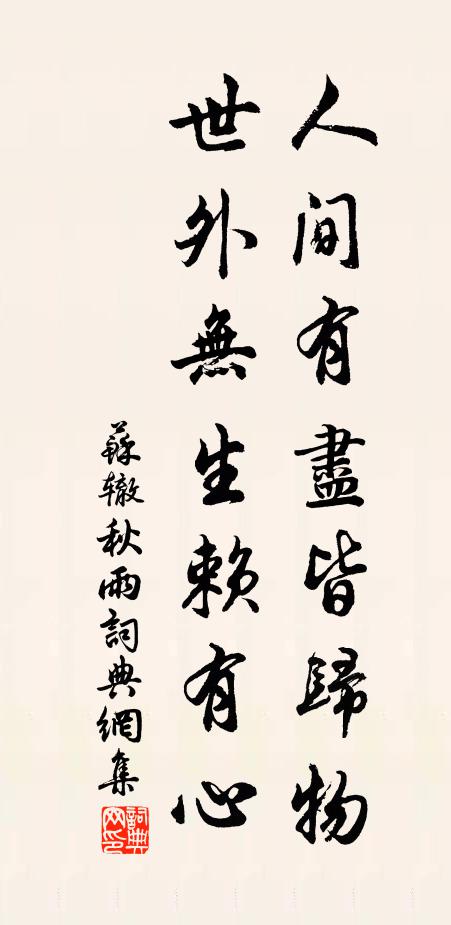 人間有盡皆歸物
世外無生賴有心
蘇轍秋雨詞典網集
詞典網印